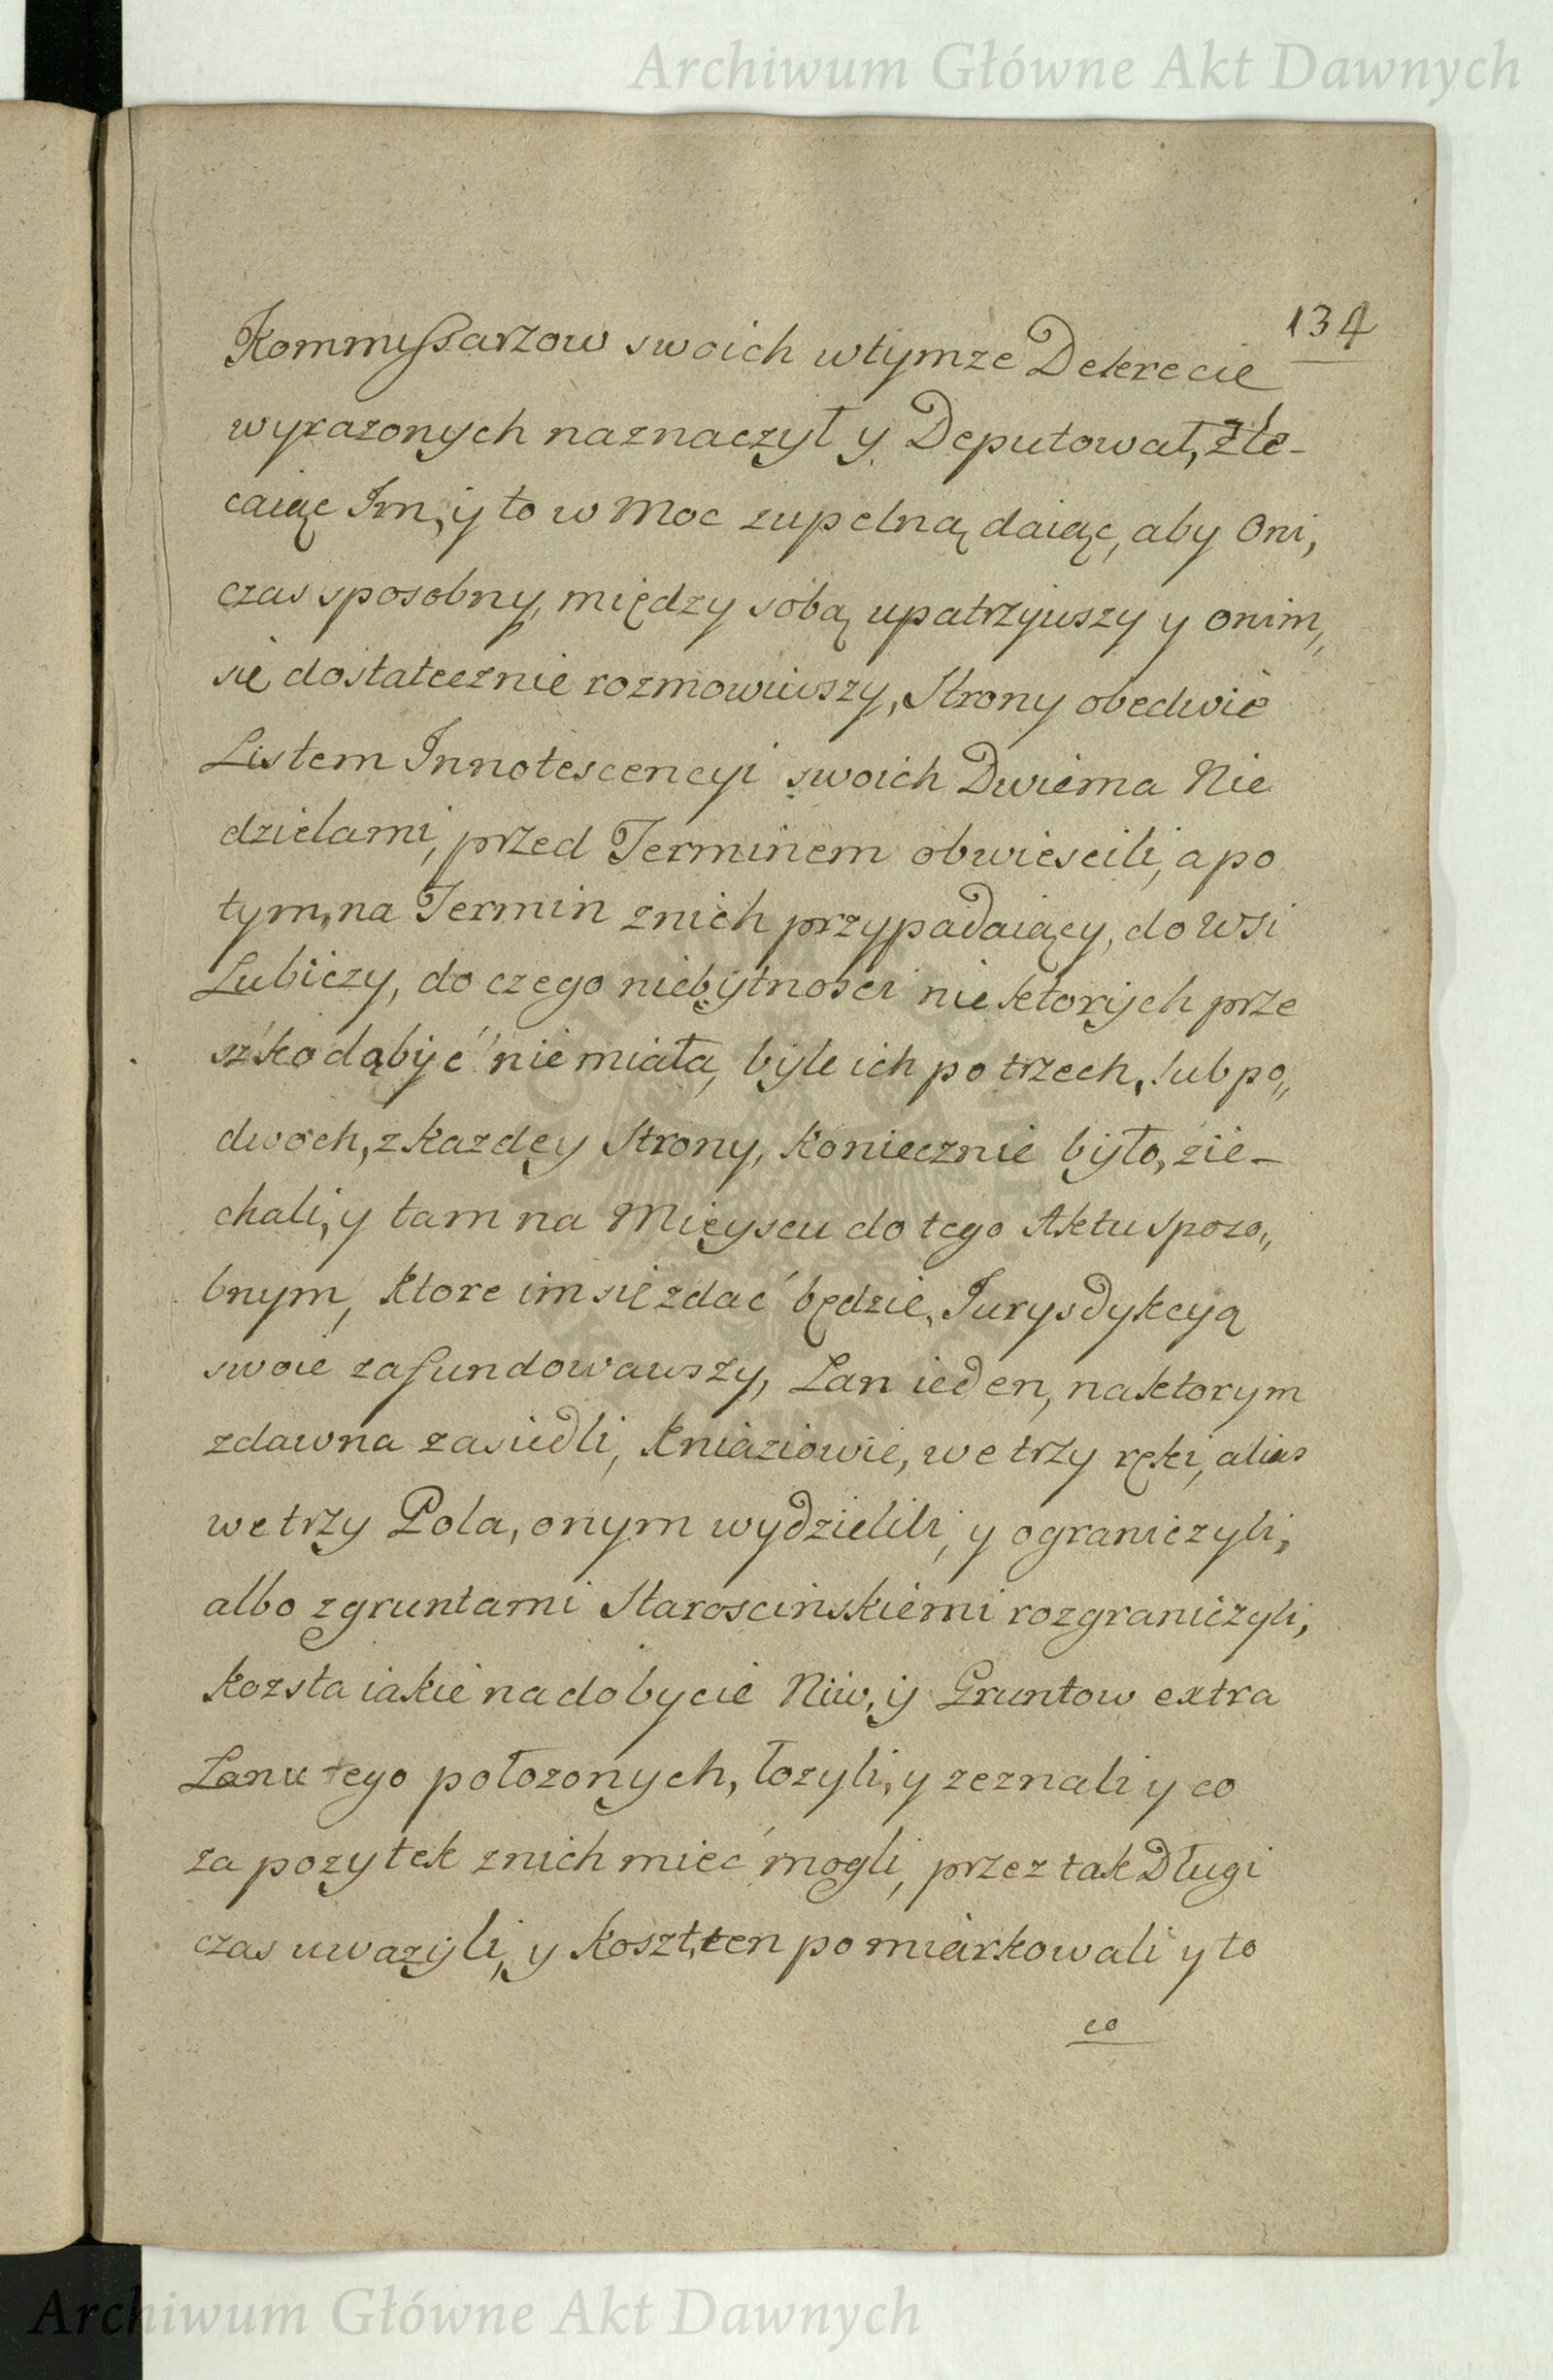 Archiwum Główne Akt Dawnych
134
Kommissarzow swoich wtymze Dekrecie
wyrazonych naznaczył y Deputował, zle-
caiąc Im, y to w Moc zupełną daiąc, aby Oni,
czas sposobny, między sobą upatrzywszy y onim,,
się dostatecznie rozmowiwszy, Strony obedwie
Listem Innotescencyi swoich Dwiema Nie
dzielami, przed Terminem obwieścili, a po
tym, na Termin znich przypadaiący, do Wsi
Lubiczy, do czego niebytności niektorych prze
szkodą być nie miała, byle ich po trzech, lub po,,
dwoch, z kazdey Strony, koniecznie było, zie-
chali, y tam na Mieyscu do tego Aktu sposo,,
bnym, ktore im się zdać będzie, Jurysdykcyą
swoie zafundowawszy, Łan ieden, naktorym
zdawna zasiedli, Kniaziowie, we trzy ręki, alias
we trzy Pola, onym wydzielili, y ograniczyli,
albo zgruntami Starościnskiemi rozgraniczyli,
kozsta iakie na dobycie Niw, y Gruntow extra
Łanu tego położonych, łozyli, y zeznali y co
za pozytek znich mieć mogli, przez tak Długi
czas uwazyli, y koszt, ten pomiarkowali y to
co
Archiwum Główne Akt Dawnych